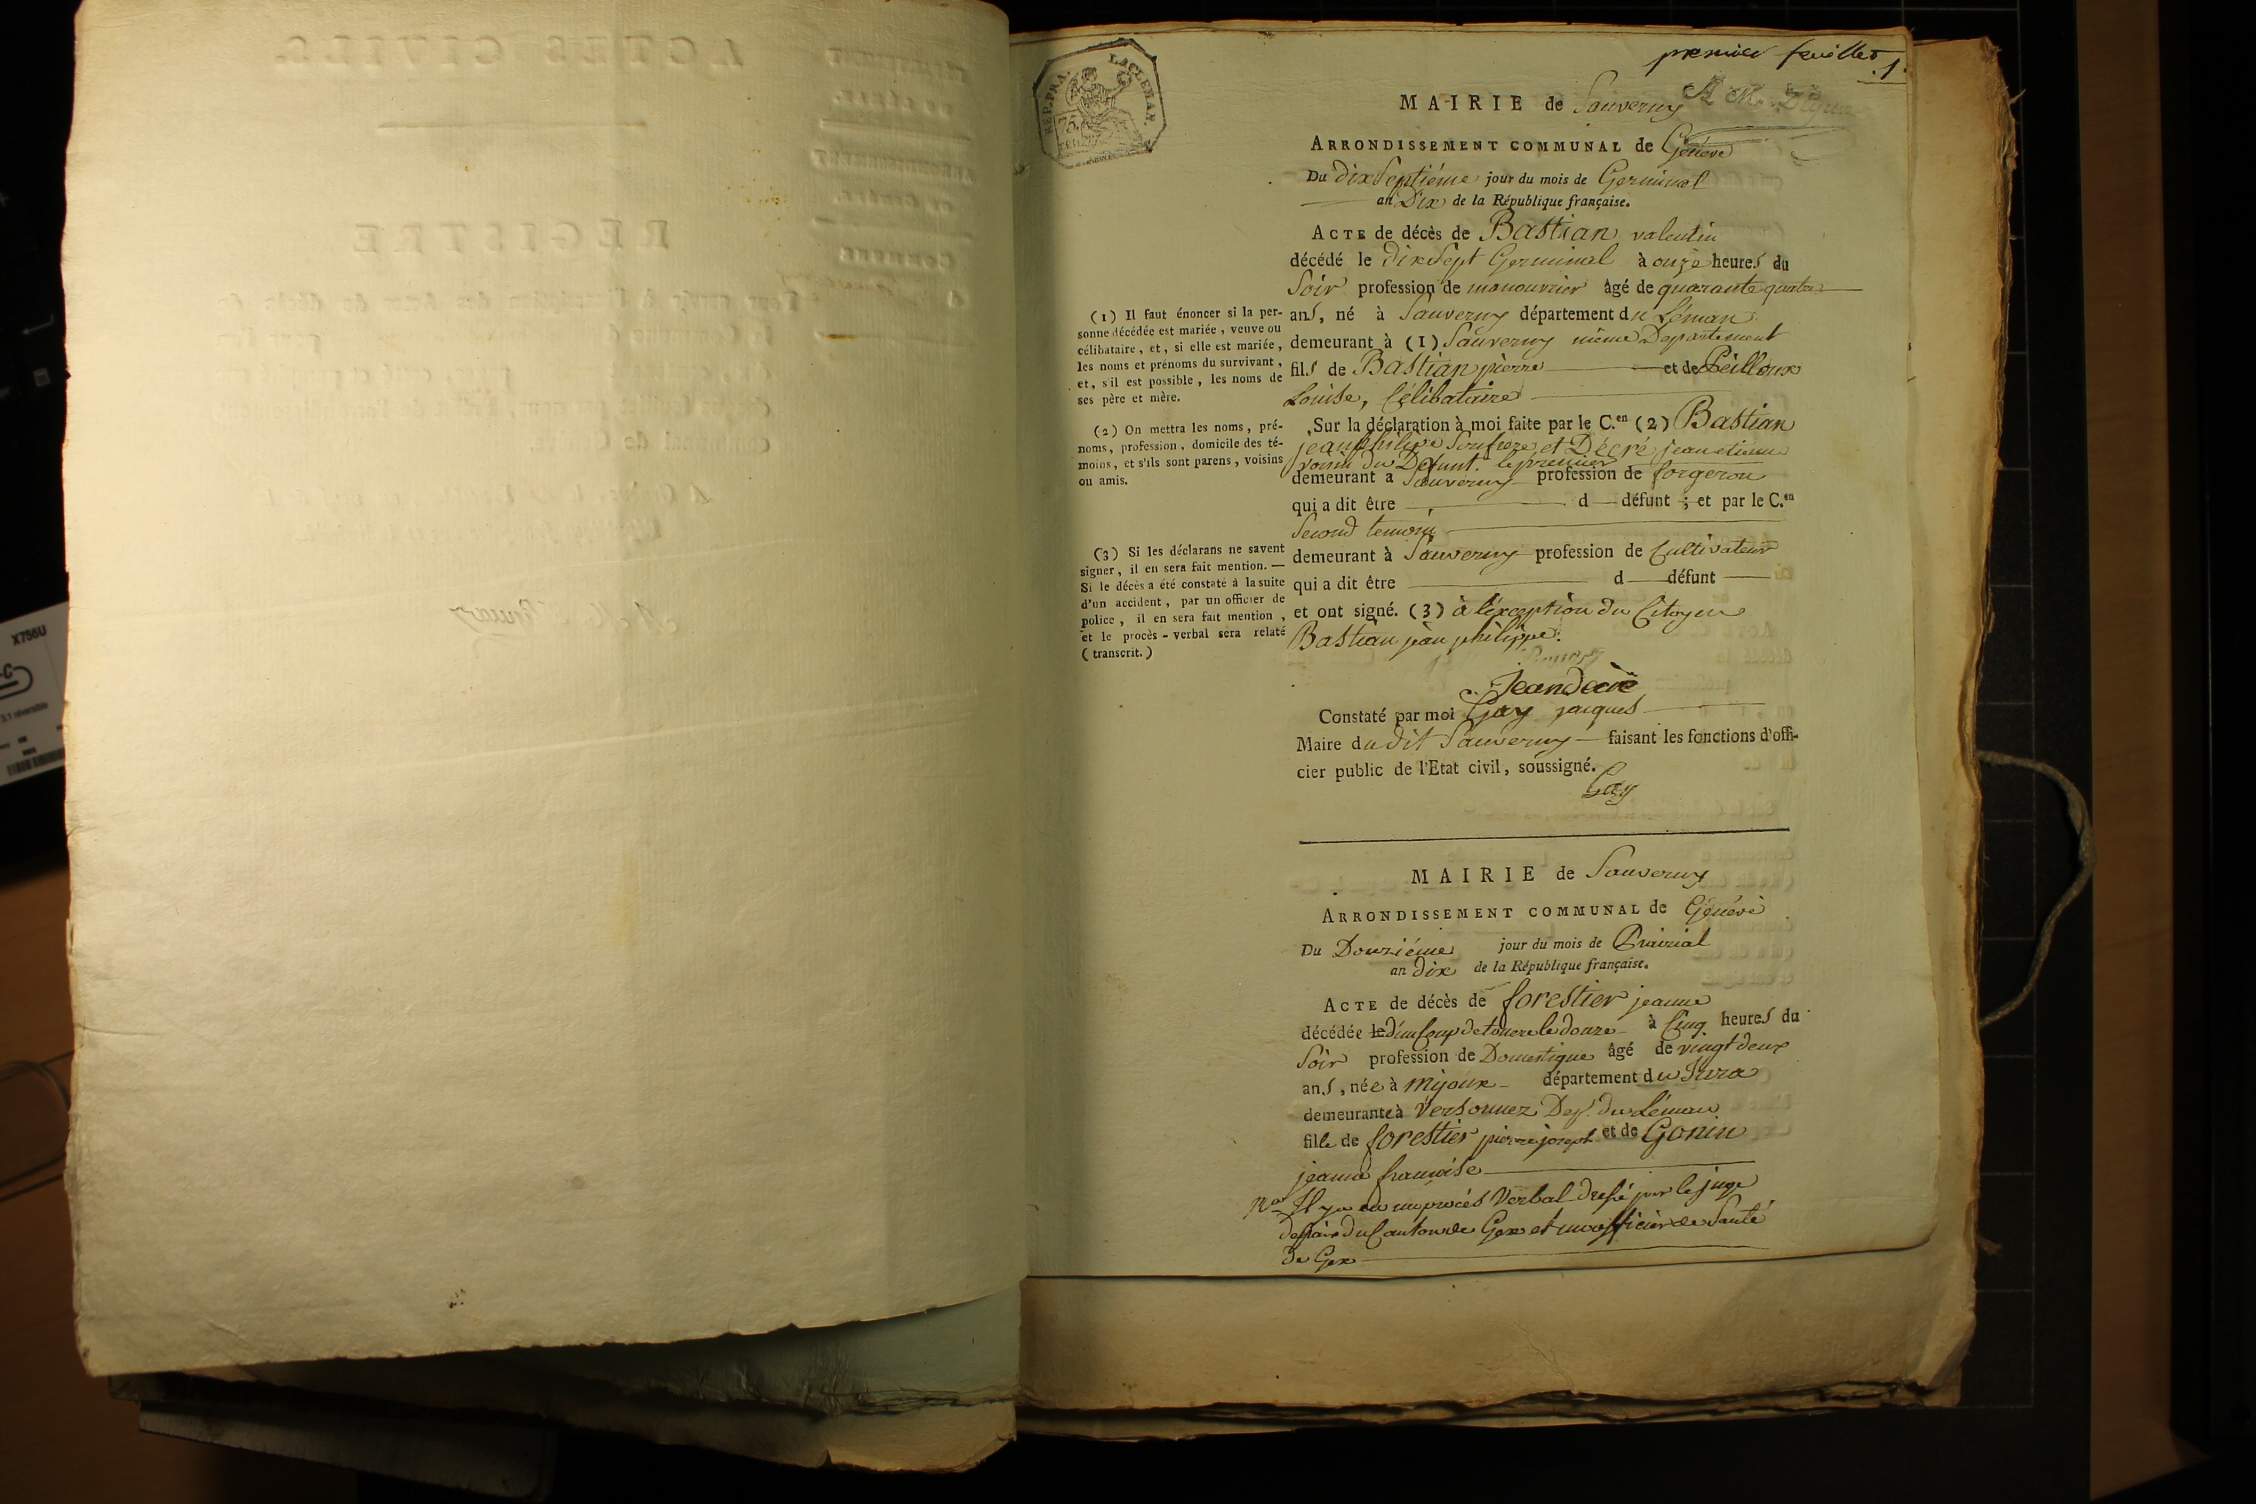 premier feuillet
.1.
RÉP. FRA.
75
CENT.
MAIRIE de Sauverny
ARRONDISSEMENT COMMUNAL de Genève
Du dixseptiéme jour du mois de Germinal
an Dix de la République française.
ACTE de décès de Bastian valentin
décédé le dixsept Germinal à onze heures du
Soir profession de manouvrier âgé de quarante quatre
ans, né à Sauverny département du Léman
demeurant à (1) Sauverny même Departement
fils de Bastian pierre et de Peilloux
Louise, Célibataire
Sur la déclaration à moi faite par le C.en (2) Bastian
jean philipe Son frere, et Décré jean etienne
voisin du Defunt. le premier
demeurant a Sauverny profession de forgeron
qui a dit être d défunt ; et par le C.en
Second temoin
demeurant à Sauverny profession de Cultivateur
qui a dit être d défunt
et ont signé. (3) à l'éxception du Citoyen
Bastian jean philippe.
Jean Decré
Constaté par moi Gay jacques
Maire du dit Sauverny faisant les fonctions d'offi-
cier public de l'Etat civil, soussigné.
Gay
(1) Il faut énoncer si la per-
sonne décédée est mariée, veuve ou
célibataire, et, si elle est mariée,
les noms et prénoms du survivant,
et, s'il est possible, les noms de
ses père et mère.
(2) On mettra les noms, pré-
noms, profession, domicile des té-
moins, et s'ils sont parens, voisins
ou amis.
(3) Si les déclarans ne savent
signer, il en sera fait mention. —
Si le décès a été constaté à la suite
d'un accident, par un officier de
police, il en sera fait mention,
et le procès-verbal sera relaté
(transcrit.)
MAIRIE de Sauverny
ARRONDISSEMENT COMMUNAL de Génève
Du Douziéme jour du mois de Prairial
an dix de la République française.
ACTE de décès de forestier jeanne
décédée le d'un Coup de tonere le douze à Cinq heures du
Soir profession de Domestique âgé de vingt deux
ans, née à Mijoux département du Jura
demeurante à Versonnex Dep.t du Léman
fille de forestier pierre joseph et de Gonin
jeanne francoise
Na Il y a eu un procés Verbal dressé par le juge
de paix du Canton de Gex et un officier de Santé
de Gex
X756U